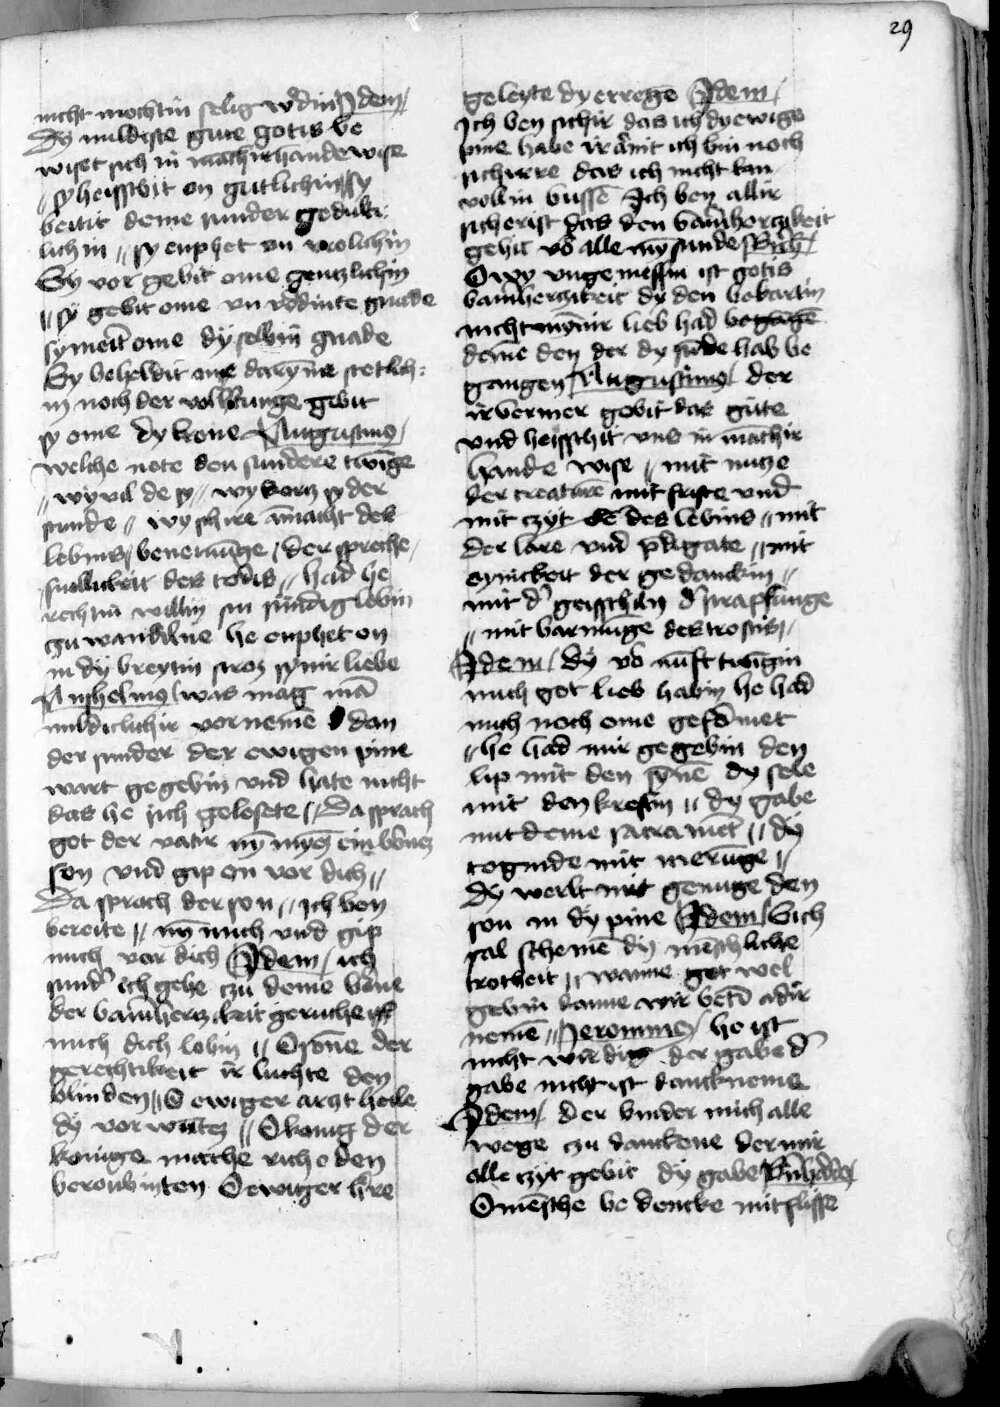 29
nicht mochtin selig wdin Idem
Dy mildiste gute gotis be
wiset sich in mächirhande wise
sy heisschit en gutlichin sy
beitit deme sunder gedulti
lichin sy enphet en vrolichin
Sy vor gebit ome genczlichin
sy gebit ome vn vödinte gnade
sy merit ome dy selbin gnade
Sy beheldit ome daryñe stetlich
in noch der volbrunge gebit
sy ome dy krone Augustinus
welche note den sundere twīge
wy vil de sy wy korcz sy der
stunde wy schire āmacht des
lebins beneīnūge der spreche
snellickeit des todis had he
rechtin willin sin sündig lebin
czu wandelne he enphet on
in dy breytin scroz synir liebe
Anshelmus was mag mā
mildiclichir vornemē dan
der sunder der ewigen pine
wart gegebin vnd hate nicht
das he sich gelosete Da sprach
got der vatir nȳ mynē einbornē
son vnd gip on vor dich
Da sprach der son ich ben
bereite nȳ mich vnd gip
mich vor dich Idem ich
sund' ich gehe czu deme borne
der barmhercz keit geruche uf
mich dich lobin O sonne der
gerechtikeit ir luchte den
blinden O ewiger arzt heile
dy vorwūtē O konig der
konige mache riche den
beroubinten O ewiger hre
geleyte dy errege Idem
Ich ben sichir das ich dy ewige
pine habe vrāint ich bin noch
sichirre das ich nicht kan
vollin bussē Ich ben allir
sicherist das den barmherczikeit
gehit vō alle my sunde
O wy vngemessin ist gotis
barmherczikeit dy den bokartin
nicht mynnir lieb had begagē
deme den der dy sūde hab be
gangen Augustinus der
irbermer gebit das gute
vnd heisschit vns in mächir
hande wise mit nucze
der creaturē mit friste vnd
mit czyt dē des lebins mit
der lare vnd p̄digate mit
eynickeit der gedanckin
mit d' geisschiln d' straphunge
mit barmūge des trostis
Idem dy vō nūft twingin
mich got lieb habin he had
mich noch ome gefōmet
he had mir gegebin den
lip mit den synē dy sele
mit den kreftin dy gabe
mit deme sacramēt dy
togunde mit merūge
dy werlt mit genuge den
son in dy pine Idem Sich
sal schemē dy meschliche
trotheit wanne got wel
gebin danne wir betī adir
nemē Jeronimus he ist
nicht wirdig der gabe d'
gabe nicht ist dancknemē
Idem der vinder mich alle
wege czu danckene der mir
alle czyt gebit dy gabe Bn̄hadus
O mēsche bedencke mit flisse